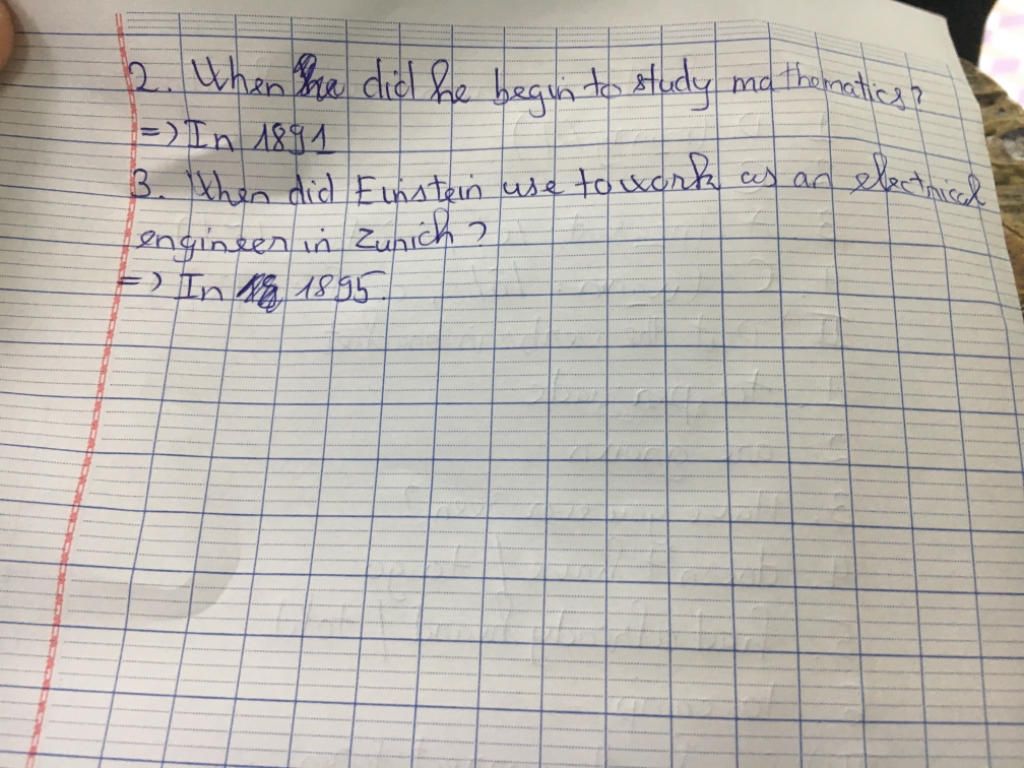 2. When did he begin to study mathematics?
=> In 1891
3. When did Einstein use to work as an electrical
engineer in Zurich?
=> In 1895.